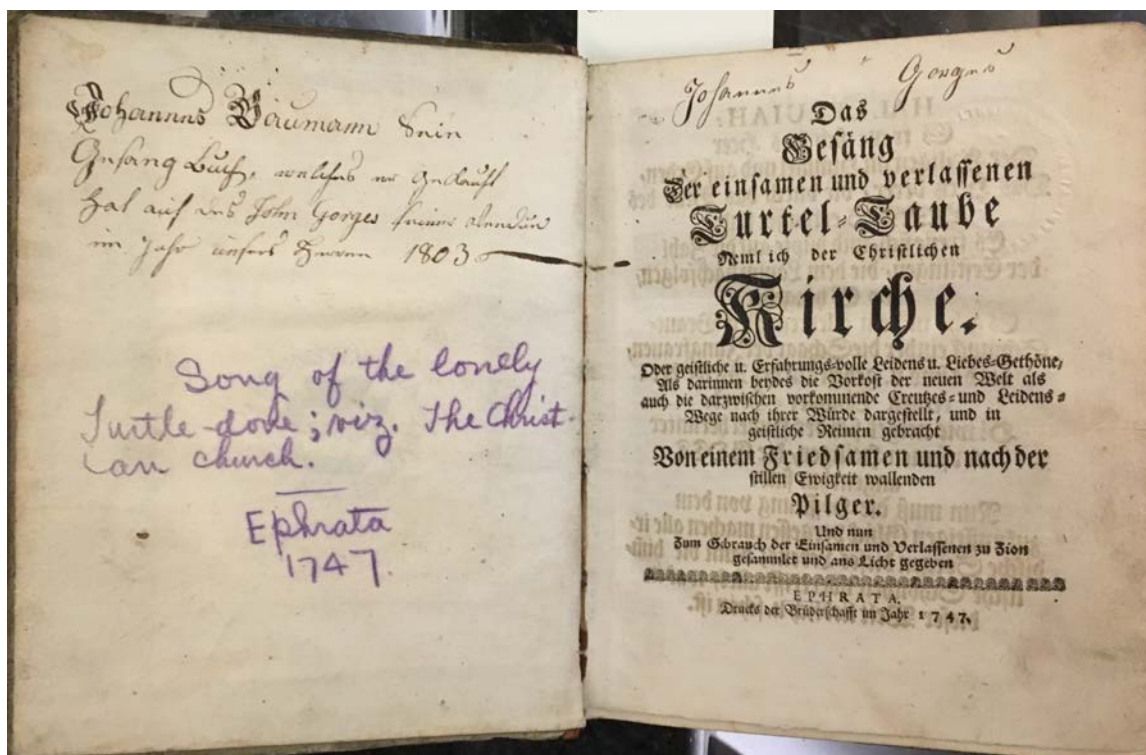 Johannes Baumann Sein
Gesang Buch, welches er Gekauft
hat auf des John Gorges seiner vendu
im Jahr unsers Herren 1803
Song of the lonely
Turtle-dove; viz. The Christ-
ian church.
Ephrata
1747.
Johannes Gorges
Das
Gesäng
Der einsamen und verlassenen
Turtel-Taube
Nemlich der Christlichen
Kirche.
Oder geistliche u. Erfahrungs-volle Leidens u. Liebes-Gethöne,
Als darinnen beydes die Vorkost der neuen Welt als
auch die darzwischen vorkommende Creutzes- und Leidens-
Wege nach ihrer Würde dargestellt, und in
geistliche Reimen gebracht
Von einem Friedsamen und nach der
stillen Ewigkeit wallenden
Pilger.
Und nun
Zum Gebrauch der Einsamen und Verlassenen zu Zion
gesammlet und ans Licht gegeben
EPHRATA.
Drucks der Brüderschafft im Jahr 1747.